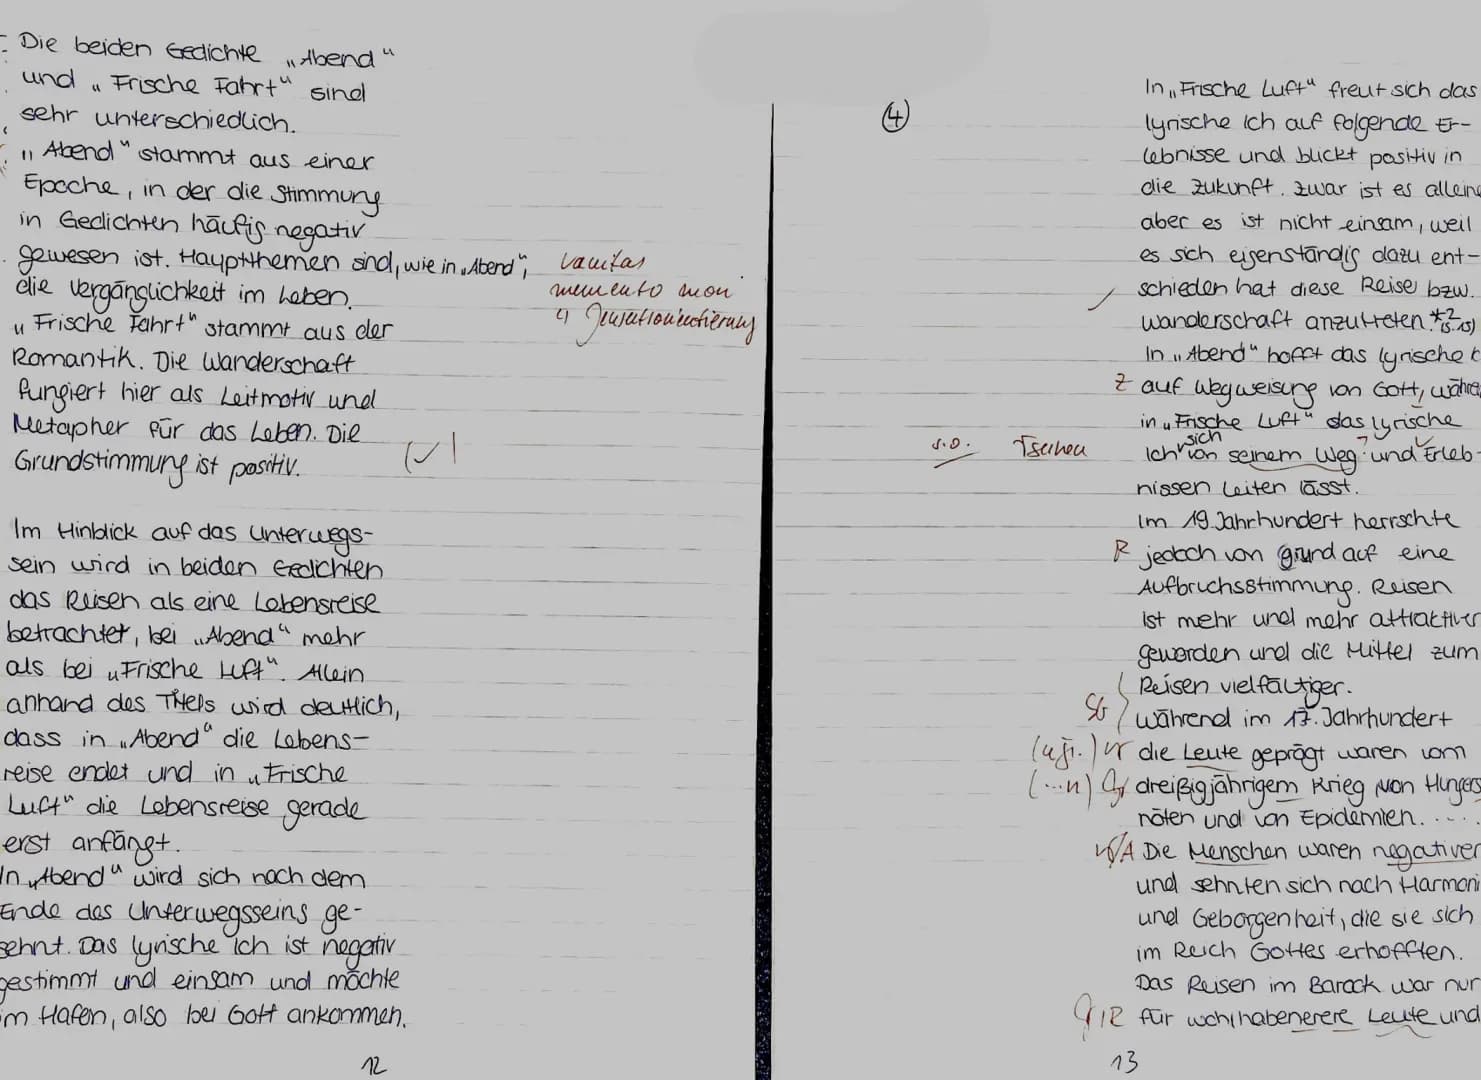 Die beiden Gedichte „Abend“
und „Frische Fahrt“ sind
sehr unterschiedlich.
„Abend“ stammt aus einer
Epoche, in der die Stimmung
in Gedichten häufig negativ
gewesen ist. Hauptthemen sind, wie in „Abend“,
die Vergänglichkeit im Leben.
„Frische Fahrt“ stammt aus der
Romantik. Die Wanderschaft
fungiert hier als Leitmotiv und
Metapher für das Leben. Die
Grundstimmung ist positiv.
vanitas
memento mori
Jenseitsorientierung
(✓)
Im Hinblick auf das Unterwegs-
sein wird in beiden Gedichten
das Reisen als eine Lebensreise
betrachtet, bei „Abend“ mehr
als bei „Frische Luft“. Allein
anhand des Titels wird deutlich,
dass in „Abend“ die Lebens-
reise endet und in „Frische
Luft“ die Lebensreise gerade
erst anfängt.
In „Abend“ wird sich nach dem
Ende des Unterwegsseins ge-
sehnt. Das lyrische Ich ist negativ
gestimmt und einsam und möchte
im Hafen, also bei Gott ankommen.
12
4
In „Frische Luft“ freut sich das
lyrische Ich auf folgende Er-
lebnisse und blickt positiv in
die Zukunft. Zwar ist es alleine
aber es ist nicht einsam, weil
es sich eigenständig dazu ent-
schieden hat diese Reise bzw.
Wanderschaft anzutreten. *2 (S. 15)
In „Abend“ hofft das lyrische
Z auf Wegweisung von Gott, währe
in „Frische Luft“ das lyrische
s.o. Ich sich von seinem Weg und Erleb-
nissen leiten lässt.
Im 19. Jahrhundert herrschte
R jedoch von grund auf eine
Aufbruchsstimmung. Reisen
ist mehr und mehr attraktiver
geworden und die Mittel zum
Reisen vielfältiger.
Sb Während im 17. Jahrhundert
die Leute geprägt waren vom
(...n) Gr dreißigjährigem Krieg, von Hungers
nöten und von Epidemien. ....
A Die Menschen waren negativer
und sehnten sich nach Harmoni
und Geborgenheit, die sie sich
im Reich Gottes erhofften.
Das Reisen im Barock war nur
R für wohlhabenerere Leute und
13